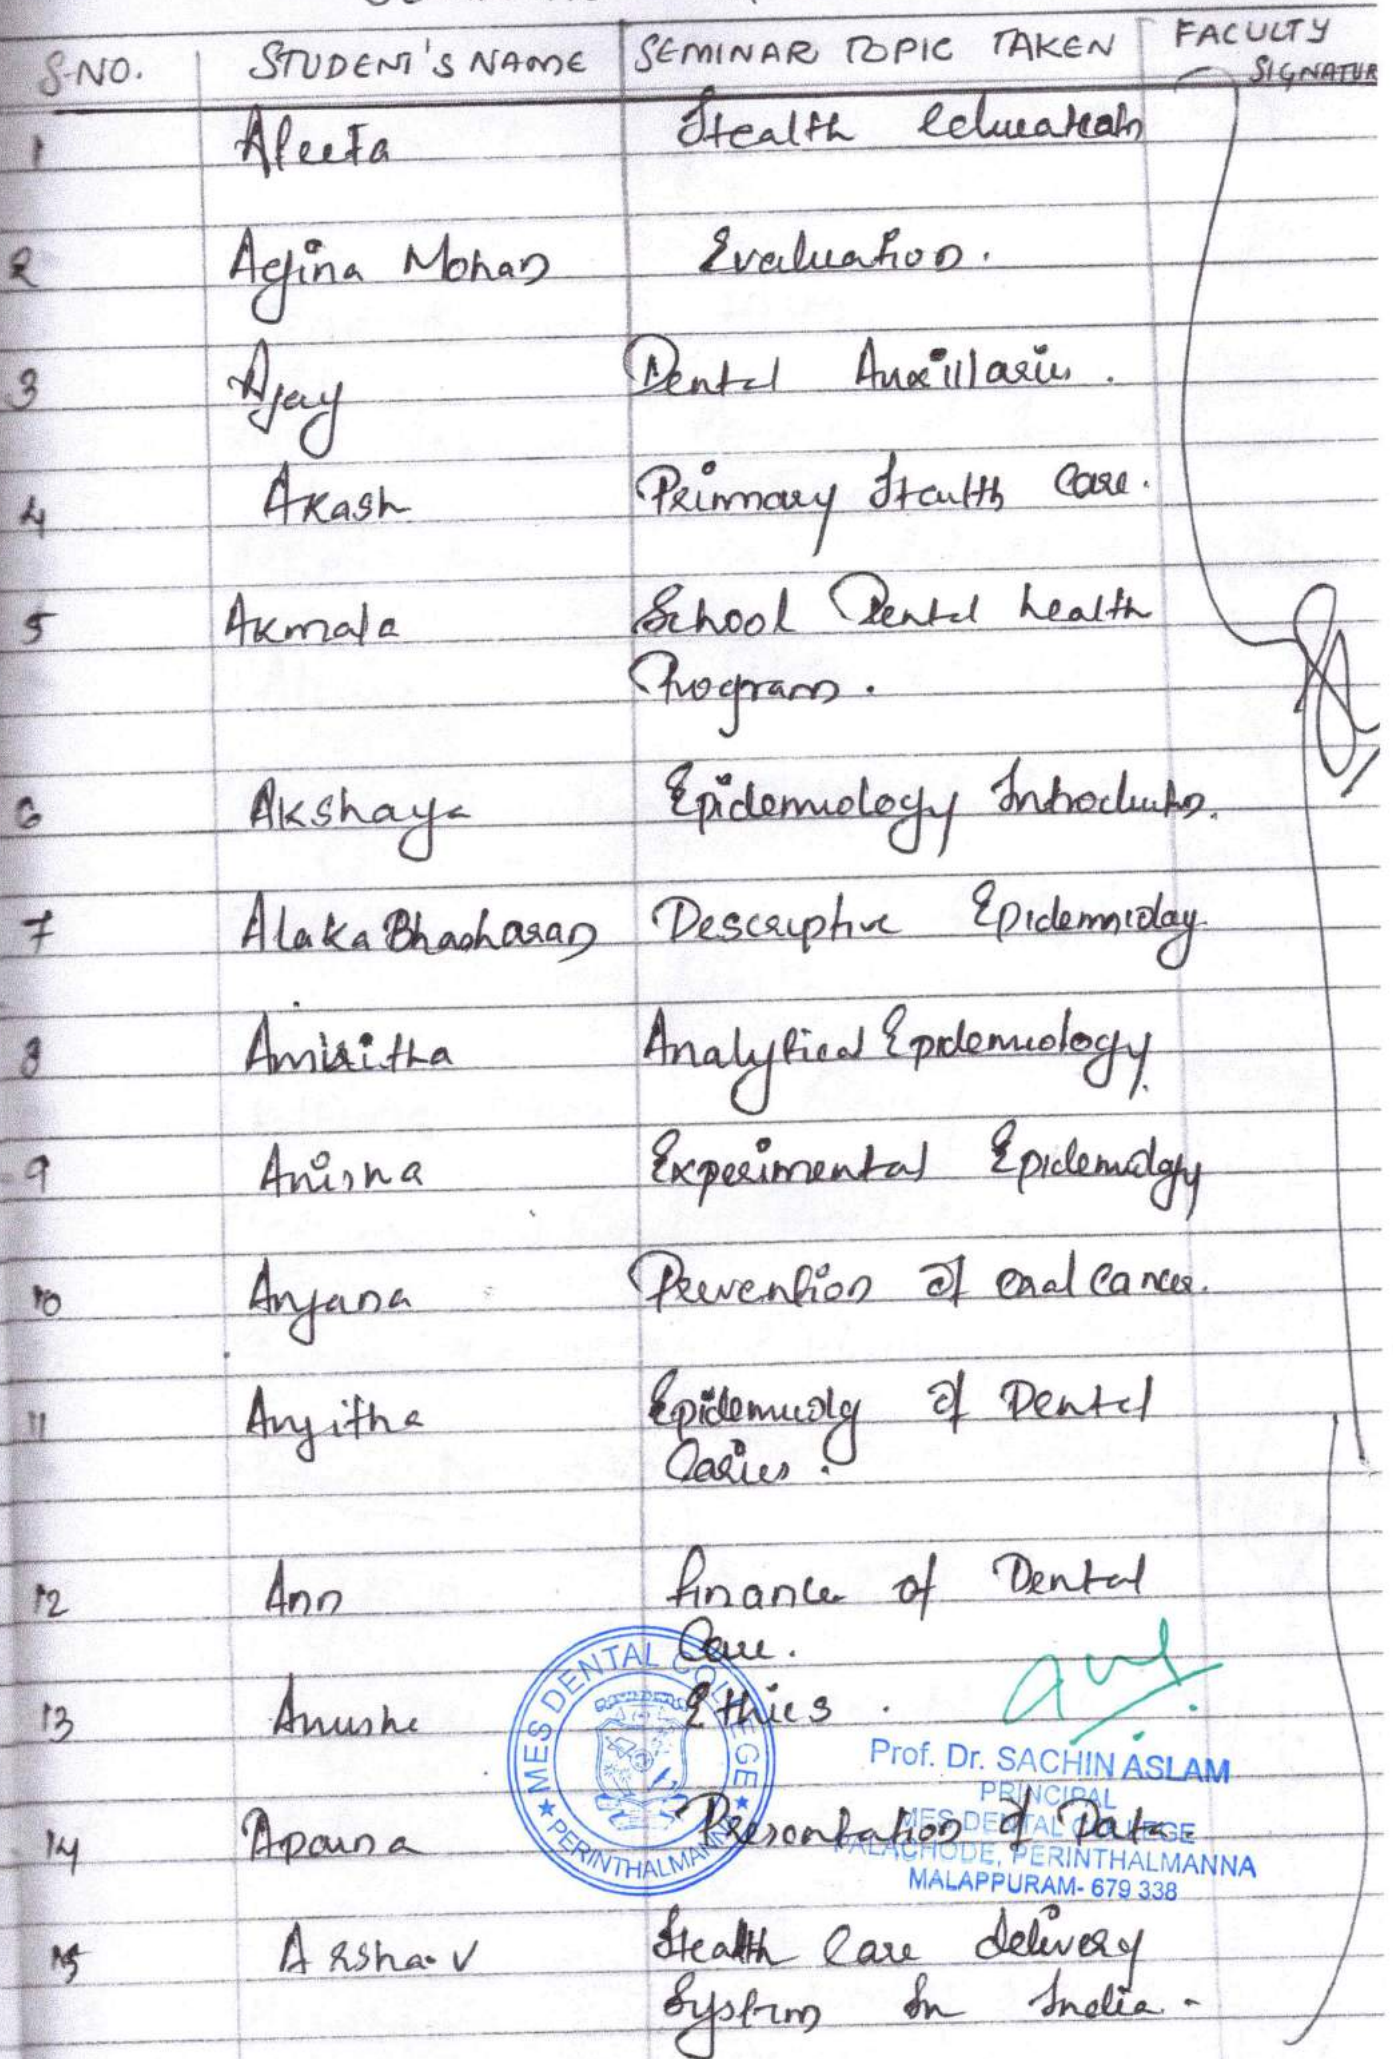 S.NO. STUDENT'S NAME SEMINAR TOPIC TAKEN FACULTY
SIGNATUR
1 Aleeta Health education
2 Agina Mohan Evaluation.
3 Ajay Dental Auxillaries.
4 Akash Primary Health Care.
5 Akmala School Dental health
Program.
6 Akshaya Epidemiology Introduction.
7 Alaka Bhasharan Descriptive Epidemiology.
8 Amritha Analytical Epidemiology.
9 Anisha Experimental Epidemiology
10 Anjana Prevention of oral Cancer.
11 Anjitha Epidemiology of Dental
Caries.
12 Ann finance of Dental
Care.
13 Anusha Ethics.
14 Aparna Presentation of Data.
15 Arsha.V Health Care delivery
System In India.
MES DENTAL COLLEGE
PERINTHALMANNA
Prof. Dr. SACHIN ASLAM
PRINCIPAL
MES DENTAL COLLEGE
PALACHODE, PERINTHALMANNA
MALAPPURAM- 679 338